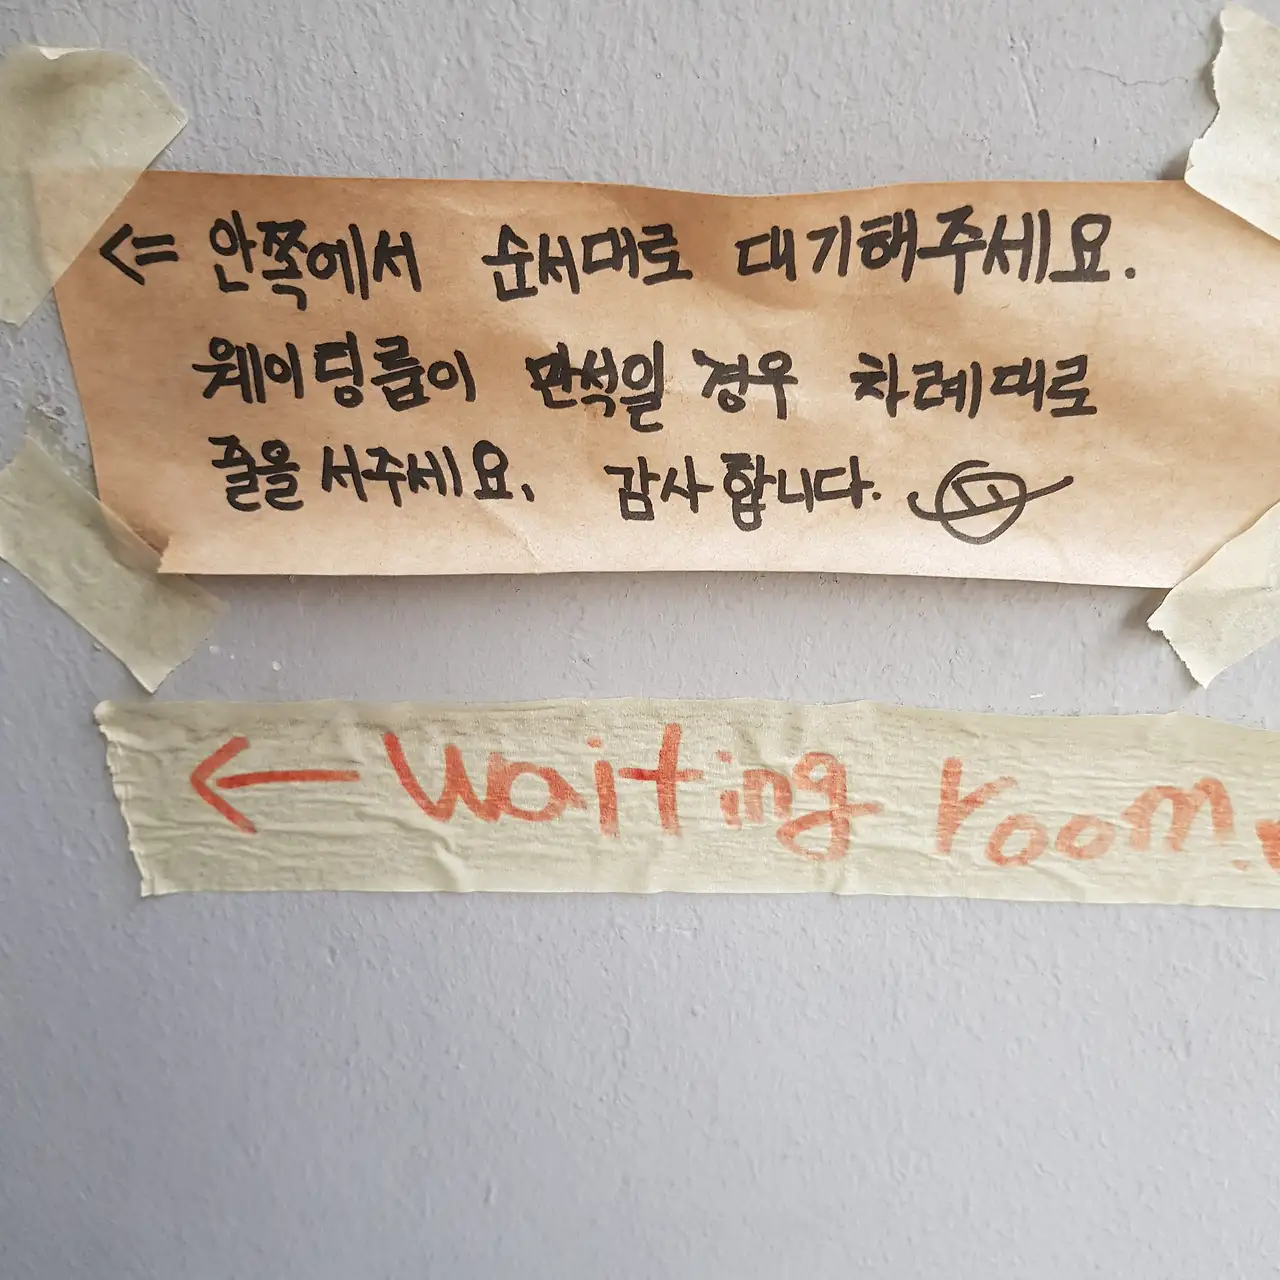 ⇐ 안쪽에서 순서대로 대기해주세요.
웨이딩룸이 만석일 경우 차례대로
줄을 서주세요. 감사합니다.
← waiting room.